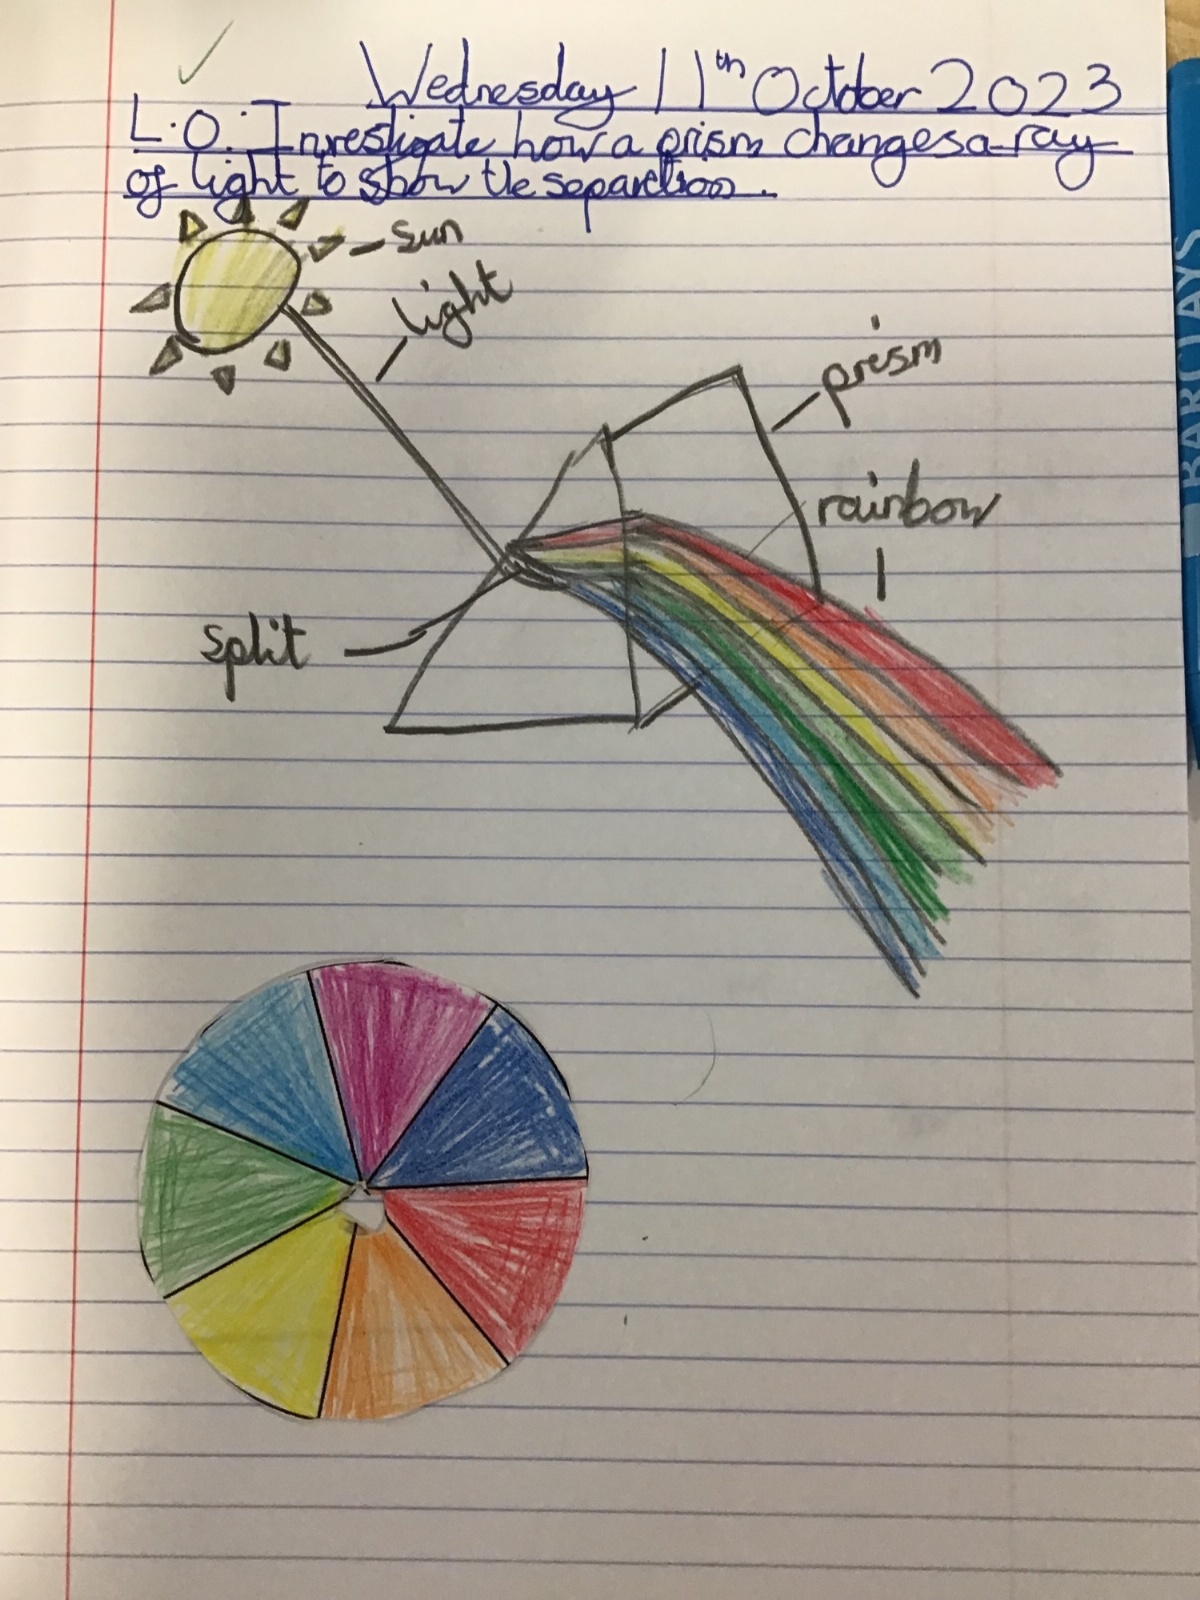 Wednesday 11th October 2023
L.O: Investigate how a prism changes a ray
of light to show the separation.
Sun
light
prism
rainbow
split
BARCLAYS